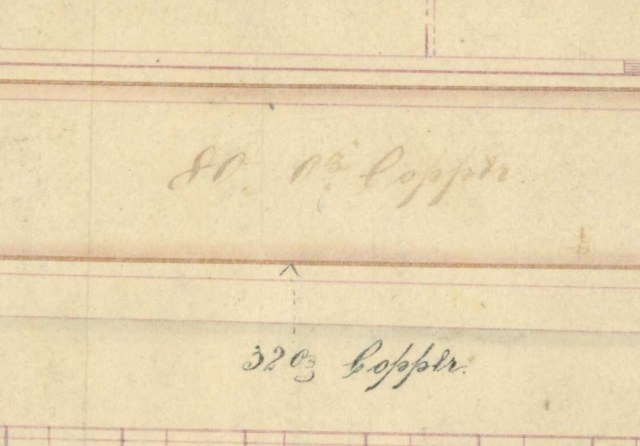 80. oz Copper
32 oz Copper.